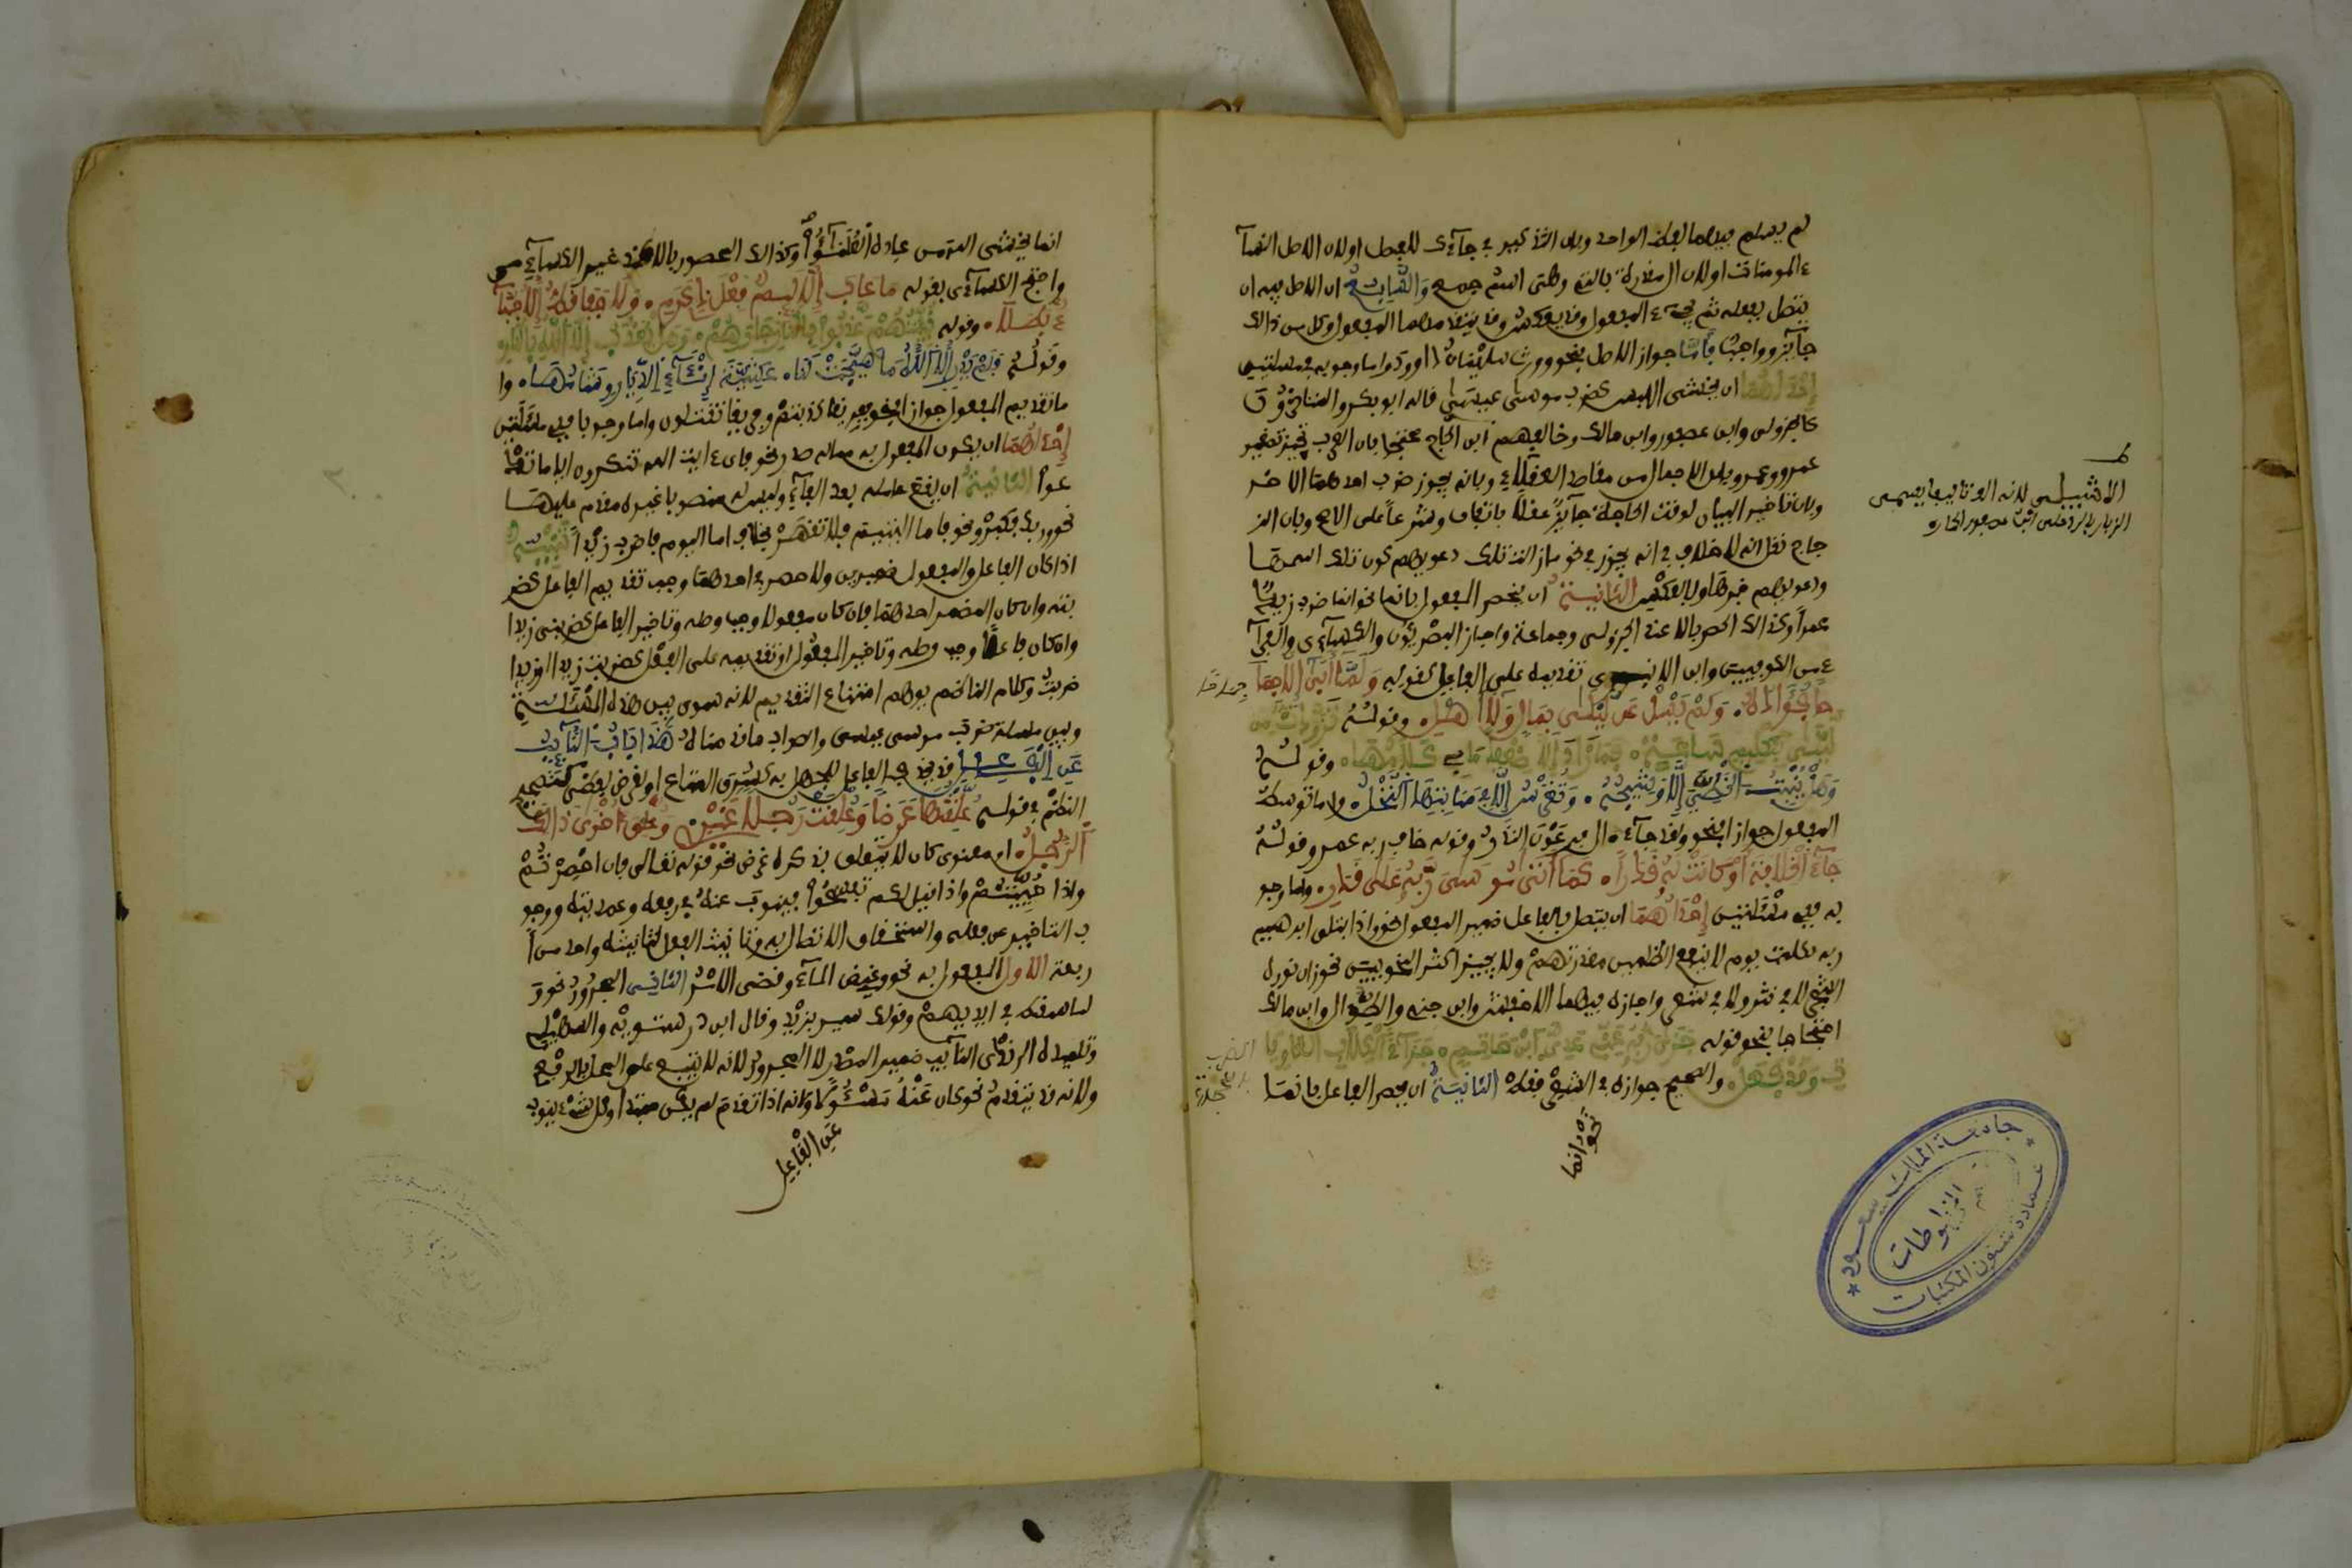 لم يسلم فيهما لفظ الواحد وبان التذكير في جآءك للفصل او لان الاصل النسآ
ء المومنات او لان ال مقدرة باللتي وهي اسم جمع والسابع ان الاصل فيه ان
يتصل بفعله ثم يجيء المفعول وقد يعكس وقد يتقدمهما المفعول وكل من ذالك
جآيز وواجب فأما جواز الاصل فنحو وورث سليمان داوود واما وجوبه ففي مسئلتين
إحداهما ان يخشى اللبس كضرب موسى عيسى قاله ابو بكر والمتاخرون
كالجزولي وابن عصفور وابن مالك وخالفهم ابن الحاج محتجا بان العرب تجيز تصغير
عمر وعمرو وبان الاجمال من مقاصد العقلاء وبانه يجوز ضرب احدهما الاخر
وبان تاخير البيان لوقت الحاجة جآيز عقلا باتفاق وشرعا على الاصح وبان الز
جاج نقل انه لا خلاف في انه يجوز في نحو فما زالت تلك دعويهم كون تلك اسمها
ودعويهم خبرها وبالعكس الثانية ان يحصر المفعول بانما نحو انما ضرب زيد
عمرا وكذالك الحصر بالا عند الجزولي وجماعة واجاز البصريون والكسآءي والفرآ
ء من الكوفيين وابن الانباري تقديمه على الفاعل كقوله ولما أبى إلا جما
حا فؤاده ولم يسل عن ليلى بمال ولا أهل وقوله تزودت من
ليلى بتكليم ساعة فما زاد إلا ضعف ما بي كلامها وقوله
وهل ينبت الخطي إلا وشيجه وتغرس إلا في منابتها النخل واما توسط
المفعول جوازا فنحو ولقد جآء ال فرعون النذر وقوله خاف ربه عمر وقوله
جآء الخلافة أو كانت له قدرا كما أتى موسى ربه على قدر واما وجو
به ففي مسئلتين إحداهما ان يتصل بالفاعل ضمير المفعول نحو واذ ابتلى ابرهيم
ربه بكلمت يوم لا ينفع الظلمين معذرتهم ولا يجيز اكثر النحويين نحو زان نوره
الشجر لا في نثر ولا في شعر واجازه فيهما الاخفش وابن جني والطوال وابن مالك
احتجاجا بنحو قوله جزى ربه عني عدي ابن حاتم جزآء الكلاب العاويا
ت وقد فعل والصحيح جوازه في الشعر فقط الثانية ان يحصر الفاعل بانما
نحو انما
جامعة الملك سعود
عمادة شئون المكتبات
قسم المخطوطات
انما يخشى الله من عباده العلمؤا وكذالك المحصور بالا عند غير الكسآءي
واحتج الكسآءي بقوله ما عاب إلا لئيم فعل ذي كرم ولا جفا قط إلا جبأ
بطلا وقوله نبئتهم عذبوا بالنار جارهم وهل يعذب إلا الله بالنار
وقوله فلم يدر إلا الله ما هيجت لنا عشية إنآء الديار وشامها وا
ما تقديم المفعول جوازا فنحو فريقا كذبتم وفريقا تقتلون واما وجوبا ففي مسئلتين
إحداهما ان يكون المفعول به مما له صدر نحو فاي ءايت الله تنكرون ايا ما تد
عوا الثانية ان يقع عامله بعد الفآء وليس له منصوب غيره مقدم عليها
نحو وربك فكبر ونحو فاما اليتيم فلا تقهر بخلاف اما اليوم فاضرب زيدا تنبيه
اذا كان الفاعل والمفعول ضميرين ولا حصر في احدهما وجب تقديم الفاعل كضر
بته وان كان المضمر احدهما فان كان مفعولا وجب وصله وتاخير الفاعل كضربني زيد
وان كان فاعلا وجب وصله وتاخير المفعول او تقديمه على الفعل كضربت زيدا او زيدا
ضربت وكلام الناظم يوهم امتناع التقديم لانه سوى بين هذه المسئلة
وبين مسئلة ضرب موسى عيسى والصواب ما ذكرنا هذا باب النآيب
عن الفاعل قد يحذف الفاعل للجهل به كسرق المتاع او لغرض لفظي كتصحيح
النظم في قوله علقتها عرضا وعلقت رجلا غيري وعلق أخرى ذالك
الرجل او معنوي كان لا يتعلق بذكره غرض نحو قوله تعالى فان احصرتم
واذا حييتم واذا قيل لكم تفسحوا فينوب عنه في رفعه وعمديته ووجو
ب التاخير عن فعله واستحقاق الاتصال به وتانيث الفعل لتانيثه واحد من ا
ربعة الاول المفعول به نحو وغيض المآء وقضي الامر الثاني المجرور نحو و
لما سقط في ايديهم وقولك سير بزيد وقال ابن درستويه والسهيلي
وتلميذه الرندي النآيب ضمير المصدر لا المجرور لانه لا يتبع على المحل بالرفع
ولانه قد يتقدم نحو كان عنه مسئولا ولانه اذا تقدم لم يكن مبتدا وكل شيء ينوب
عن الفاعل